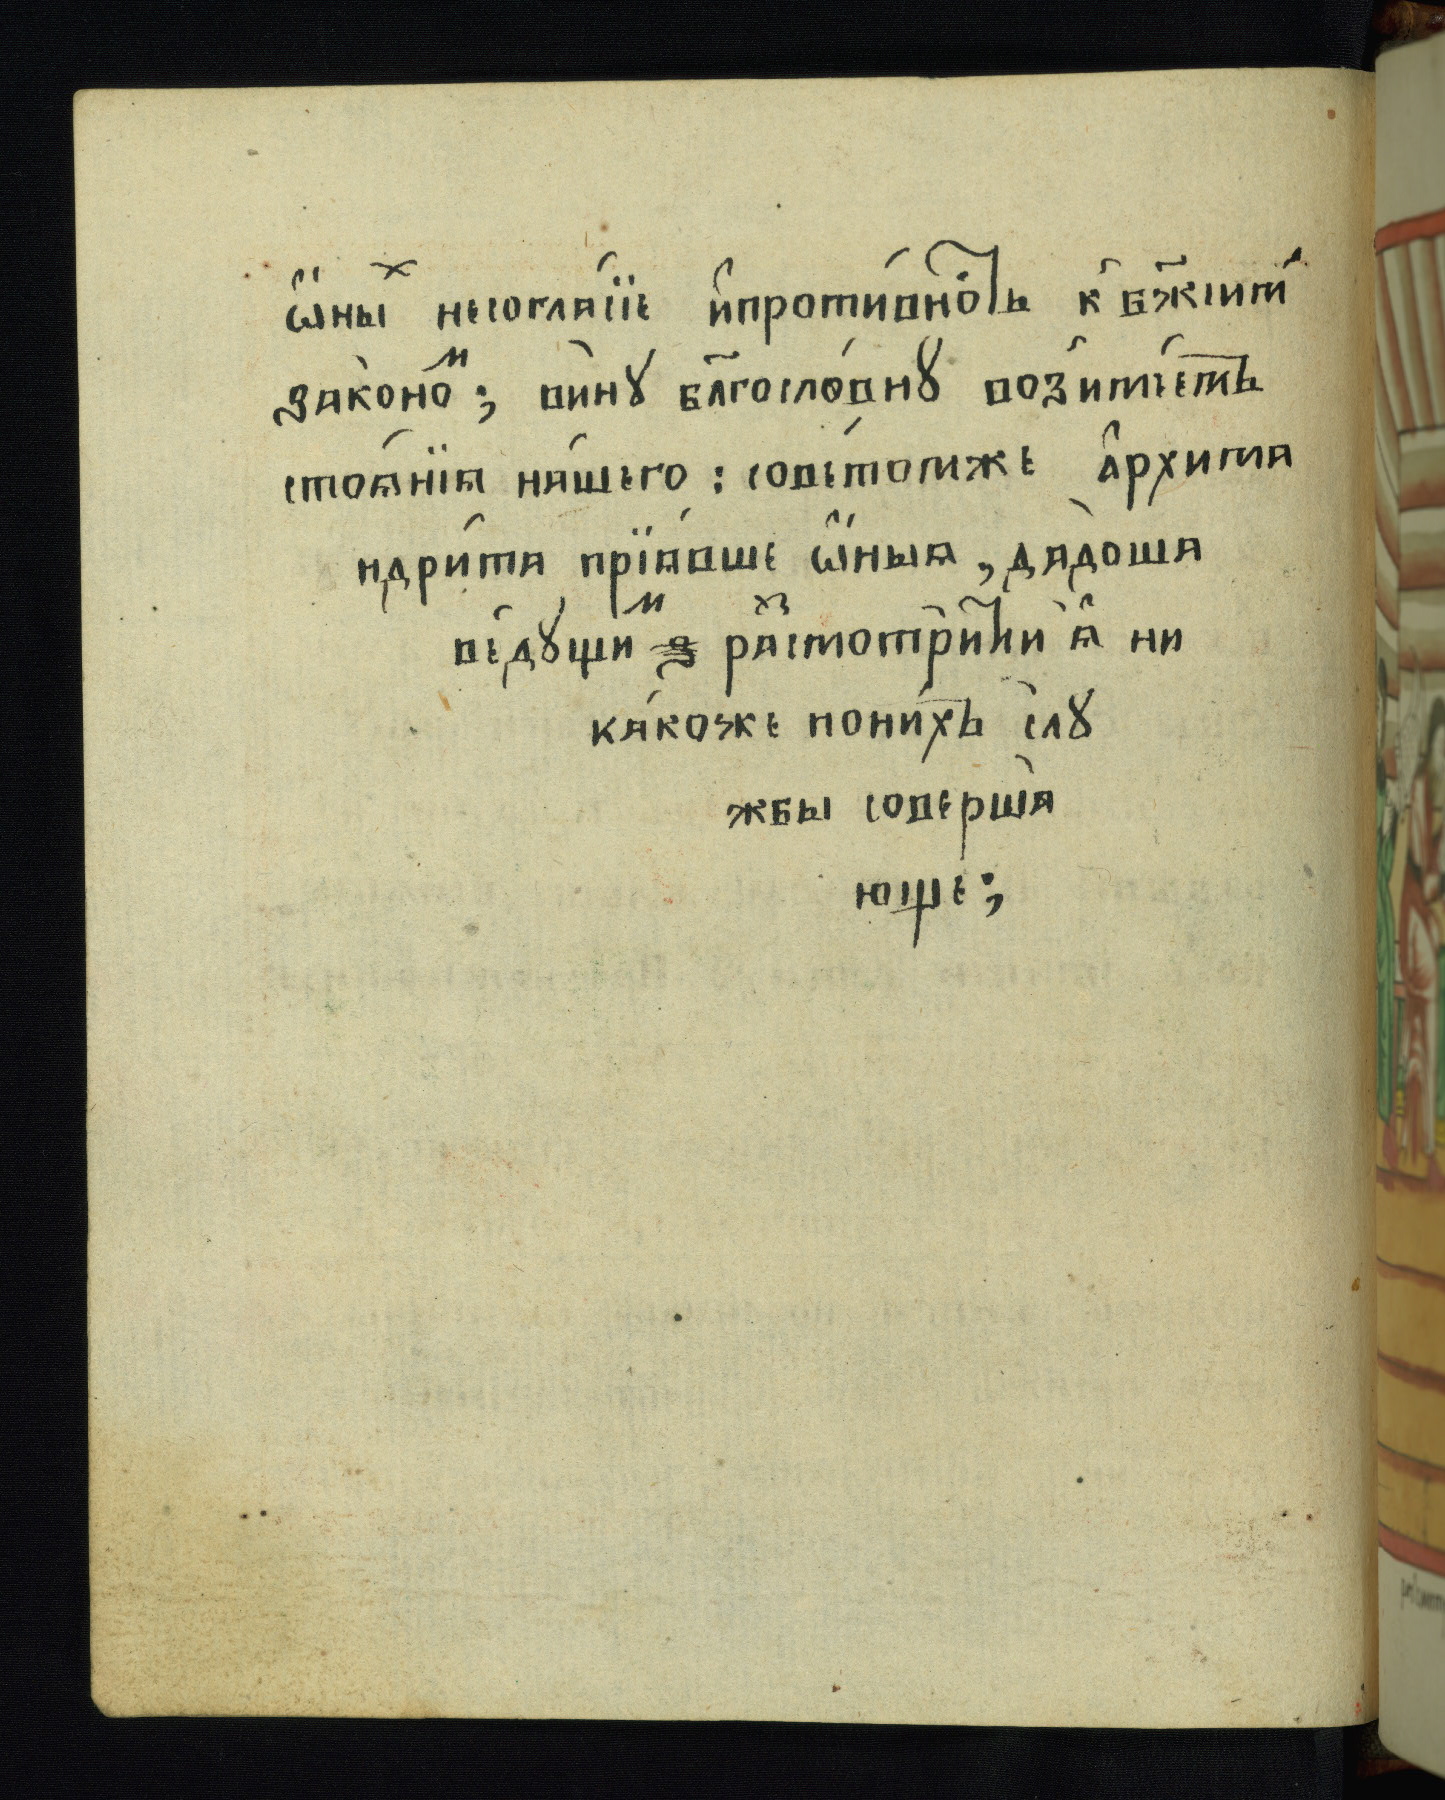 ѡ҆́ны́ⷯ несогла́сїе и҆проти́вно́ⷭ҇ть к҆ бж҃їимъ
зако́нѡⷨ; ви́нꙋ бл҃гослѡ́внꙋ возъи́мѣтъ
стоѧ́нїѧ на́шего: совѣ́томже а҆рхима
ндри́та прїѧ́вше ѡ҆́ныѧ, дадо́ша
вѣ́дꙋщиⷨ раⷥ҇смотри́ти ѧ҆̀ ни
ка́коже пони́хъ слꙋ́
жбы соверша́
юще;